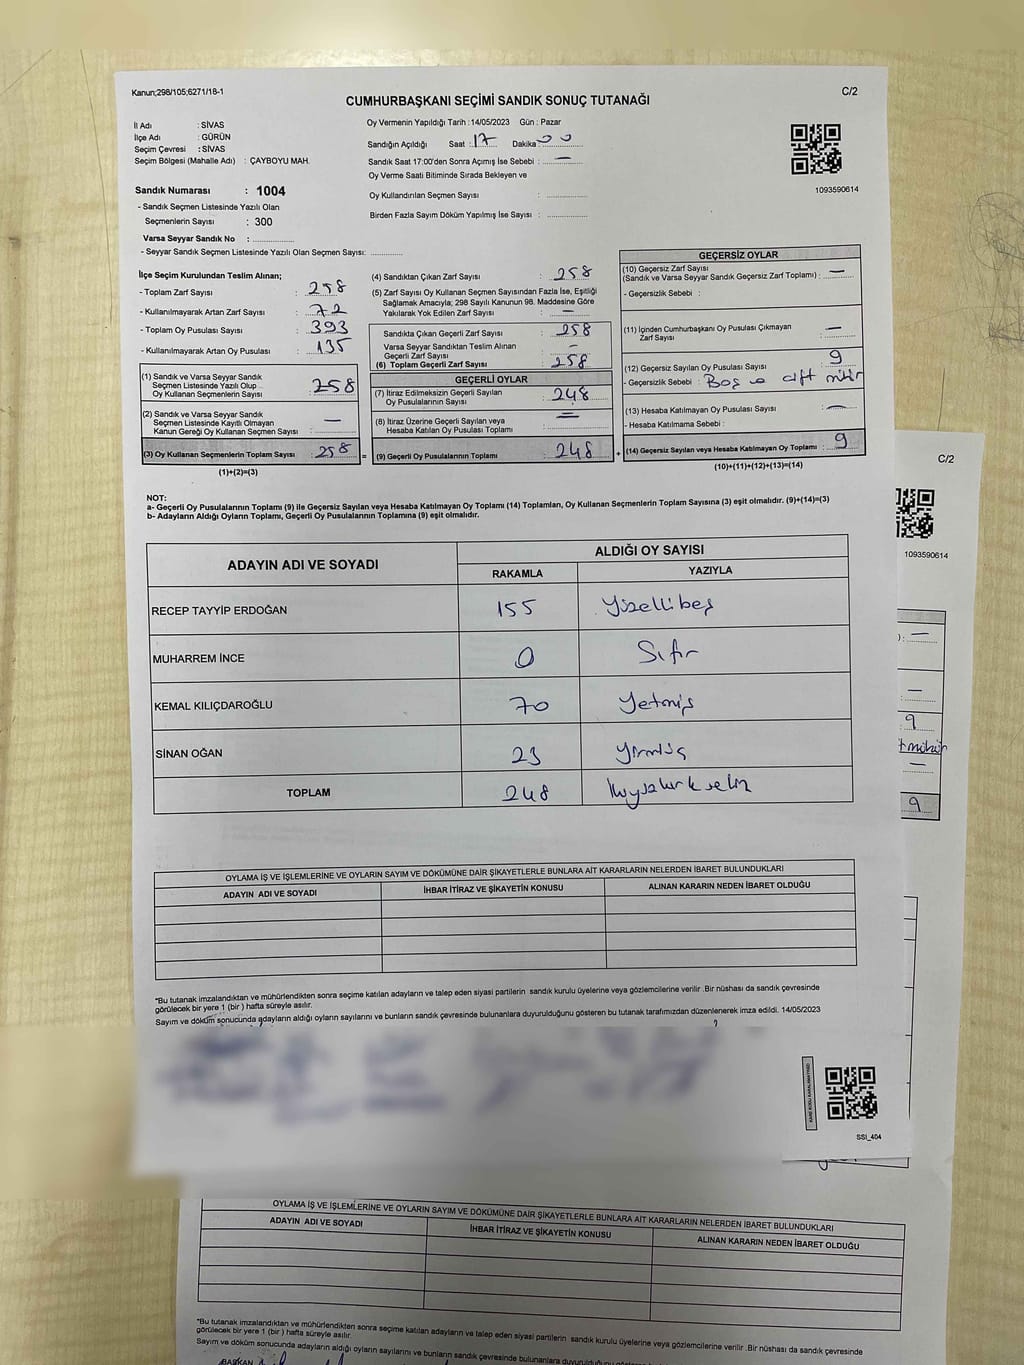 Kanun;298/105;6271/18-1
C/2
CUMHURBAŞKANI SEÇİMİ SANDIK SONUÇ TUTANAĞI
İl Adı : SİVAS
İlçe Adı : GÜRÜN
Seçim Çevresi : SİVAS
Seçim Bölgesi (Mahalle Adı) : ÇAYBOYU MAH.
Oy Vermenin Yapıldığı Tarih :14/05/2023 Gün : Pazar
Sandığın Açıldığı Saat : 17 Dakika 00
Sandık Saat 17:00'den Sonra Açımış İse Sebebi : —
Oy Verme Saati Bitiminde Sırada Bekleyen ve
Oy Kullandırılan Seçmen Sayısı :
Birden Fazla Sayım Döküm Yapılmış İse Sayısı :
1093590614
Sandık Numarası : 1004
- Sandık Seçmen Listesinde Yazılı Olan
Seçmenlerin Sayısı : 300
Varsa Seyyar Sandık No :
- Seyyar Sandık Seçmen Listesinde Yazılı Olan Seçmen Sayısı:
İlçe Seçim Kurulundan Teslim Alınan;
- Toplam Zarf Sayısı : 258
- Kullanılmayarak Artan Zarf Sayısı : 72
- Toplam Oy Pusulası Sayısı : 393
- Kullanılmayarak Artan Oy Pusulası : 135
(1) Sandık ve Varsa Seyyar Sandık
Seçmen Listesinde Yazılı Olup
Oy Kullanan Seçmenlerin Sayısı : 258
(2) Sandık ve Varsa Seyyar Sandık
Seçmen Listesinde Kayıtlı Olmayan
Kanun Gereği Oy Kullanan Seçmen Sayısı : —
(3) Oy Kullanan Seçmenlerin Toplam Sayısı : 258
(1)+(2)=(3)
(4) Sandıktan Çıkan Zarf Sayısı : 258
(5) Zarf Sayısı Oy Kullanan Seçmen Sayısından Fazla İse, Eşitliği
Sağlamak Amacıyla; 298 Sayılı Kanunun 98. Maddesine Göre
Yakılarak Yok Edilen Zarf Sayısı : —
Sandıkta Çıkan Geçerli Zarf Sayısı : 258
Varsa Seyyar Sandıktan Teslim Alınan
Geçerli Zarf Sayısı : —
(6) Toplam Geçerli Zarf Sayısı : 258
GEÇERLİ OYLAR
(7) İtiraz Edilmeksizin Geçerli Sayılan
Oy Pusulalarının Sayısı : 248
(8) İtiraz Üzerine Geçerli Sayılan veya
Hesaba Katılan Oy Pusulası Toplamı : =
(9) Geçerli Oy Pusulalarının Toplamı : 248
GEÇERSİZ OYLAR
(10) Geçersiz Zarf Sayısı
(Sandık ve Varsa Seyyar Sandık Geçersiz Zarf Toplamı) : —
- Geçersizlik Sebebi :
(11) İçinden Cumhurbaşkanı Oy Pusulası Çıkmayan
Zarf Sayısı : —
(12) Geçersiz Sayılan Oy Pusulası Sayısı : 9
- Geçersizlik Sebebi : Boş ve çift mühür
(13) Hesaba Katılmayan Oy Pusulası Sayısı : —
- Hesaba Katılmama Sebebi :
(14) Geçersiz Sayılan veya Hesaba Katılmayan Oy Toplamı : 9
(10)+(11)+(12)+(13)=(14)
NOT:
a- Geçerli Oy Pusulalarının Toplamı (9) ile Geçersiz Sayılan veya Hesaba Katılmayan Oy Toplamı (14) Toplamları, Oy Kullanan Seçmenlerin Toplam Sayısına (3) eşit olmalıdır. (9)+(14)=(3)
b- Adayların Aldığı Oyların Toplamı, Geçerli Oy Pusulalarının Toplamına (9) eşit olmalıdır.
ADAYIN ADI VE SOYADI
ALDIĞI OY SAYISI
RAKAMLA YAZIYLA
RECEP TAYYİP ERDOĞAN 155 Yüzellibeş
MUHARREM İNCE 0 Sıfır
KEMAL KILIÇDAROĞLU 70 Yetmiş
SİNAN OĞAN 23 Yirmiüç
TOPLAM 248
OYLAMA İŞ VE İŞLEMLERİNE VE OYLARIN SAYIM VE DÖKÜMÜNE DAİR ŞİKAYETLERLE BUNLARA AİT KARARLARIN NELERDEN İBARET BULUNDUKLARI
ADAYIN ADI VE SOYADI İHBAR İTİRAZ VE ŞİKAYETİN KONUSU ALINAN KARARIN NEDEN İBARET OLDUĞU
"Bu tutanak imzalandıktan ve mühürlendikten sonra seçime katılan adayların ve talep eden siyasi partilerin sandık kurulu üyelerine veya gözlemcilerine verilir .Bir nüshası da sandık çevresinde
görülecek bir yere 1 (bir ) hafta süreyle asılır.
Sayım ve döküm sonucunda adayların aldığı oyların sayılarını ve bunların sandık çevresinde bulunanlara duyurulduğunu gösteren bu tutanak tarafımızdan düzenlenerek imza edildi. 14/05/2023
SSİ_404
C/2
1093590614
) : —
—
9
t mühür
—
9
OYLAMA İŞ VE İŞLEMLERİNE VE OYLARIN SAYIM VE DÖKÜMÜNE DAİR ŞİKAYETLERLE BUNLARA AİT KARARLARIN NELERDEN İBARET BULUNDUKLARI
ADAYIN ADI VE SOYADI İHBAR İTİRAZ VE ŞİKAYETİN KONUSU ALINAN KARARIN NEDEN İBARET OLDUĞU
"Bu tutanak imzalandıktan ve mühürlendikten sonra seçime katılan adayların ve talep eden siyasi partilerin sandık kurulu üyelerine veya gözlemcilerine verilir .Bir nüshası da sandık çevresinde
görülecek bir yere 1 (bir ) hafta süreyle asılır.
Sayım ve döküm sonucunda adayların aldığı oyların sayılarını ve bunların sandık çevresinde bulunanlara
BAŞKAN